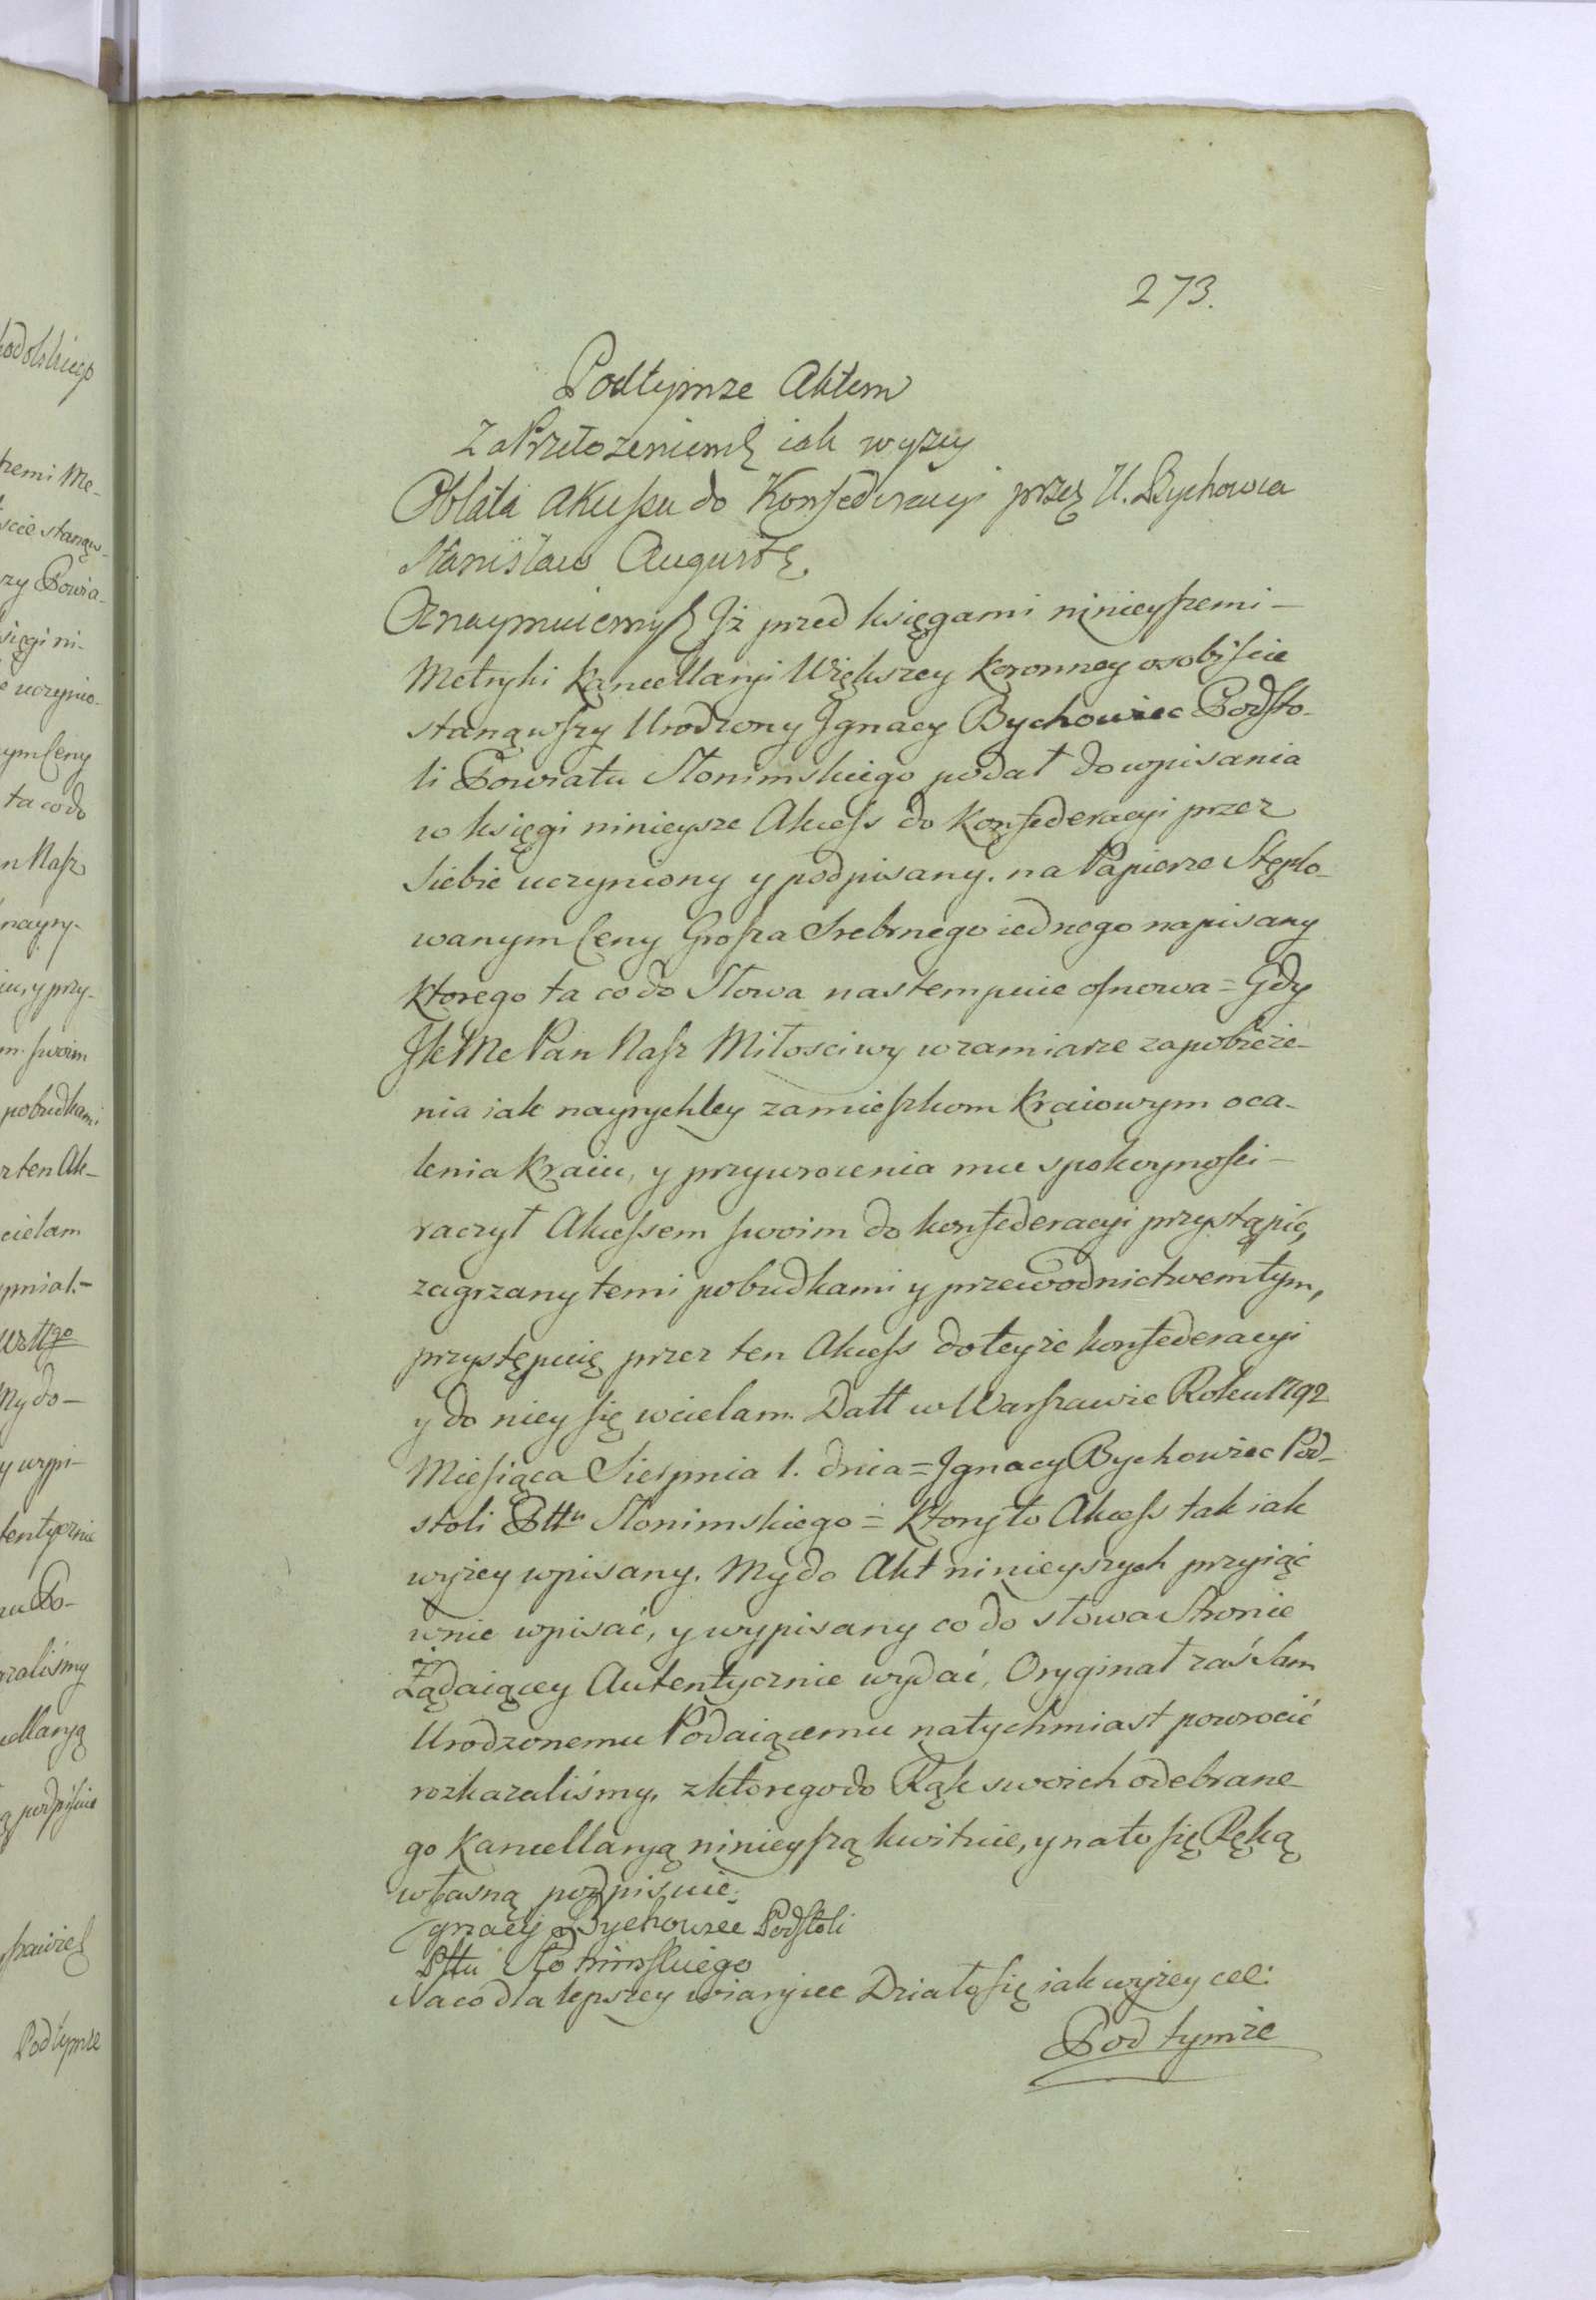 273.
Podtymże Aktem
Z Przełożeniem iak wyżey
Oblata Akcessu do Konfederacyi przez U. Bychowca
Stanisław August
Oznaymuiemy Iż przed księgami ninieyszemi
Metryki Kancellaryi Większey Koronney osobiście
stanąwszy Urodzony Ignacy Bychowiec Podsto-
li Powiatu Słonimskiego podał do wpisania
w księgi ninieysze Akcess do Konfederacyi przez
Siebie uczyniony y podpisany. na Papierze Stęplo-
wanym Ceny Grosza Srebrnego iednego napisany
ktorego ta co do Słowa nastempuie osnowa = Gdy
JKMc Pan Nasz Miłosciwy w zamiarze zapobieże-
nia iak nayrychley zamieszkom Kraiowym oca-
lenia Kraiu, y przywrocenia mu spokoyności –
raczył Akcessem swoim do konfederacyi przystąpić,
zagrzany temi pobudkami y przewodnictwem tym,
przystępuię przez ten Akcess do teyże konfederacyi
y do niey się wcielam. Datt w Warszawie Roku 1792
Miesiąca Sierpnia 1. dnia = Ignacy Bychowiec Pod-
stoli Pttu Słonimskiego = Ktory to Akcess tak iak
wyżey wpisany. My do Akt ninieyszych przyiąć
w nie wpisać, y wypisany co do słowa Stronie
Żądaiącey Autentycznie wydać, Oryginał zaś Sam
Urodzonemu Podaiącemu natychmiast powrocić
rozkazaliśmy, z ktorego do Rąk swoich odebrane-
go Kancellaryą ninieyszą kwituie, y na to się Ręką
własną podpisuie.
Ignacy Bychowiec Podstoli
Pttu Słonimskiego
Na co dla lepszey wiary etc Działo się iak wyżey etc:
Pod tymże